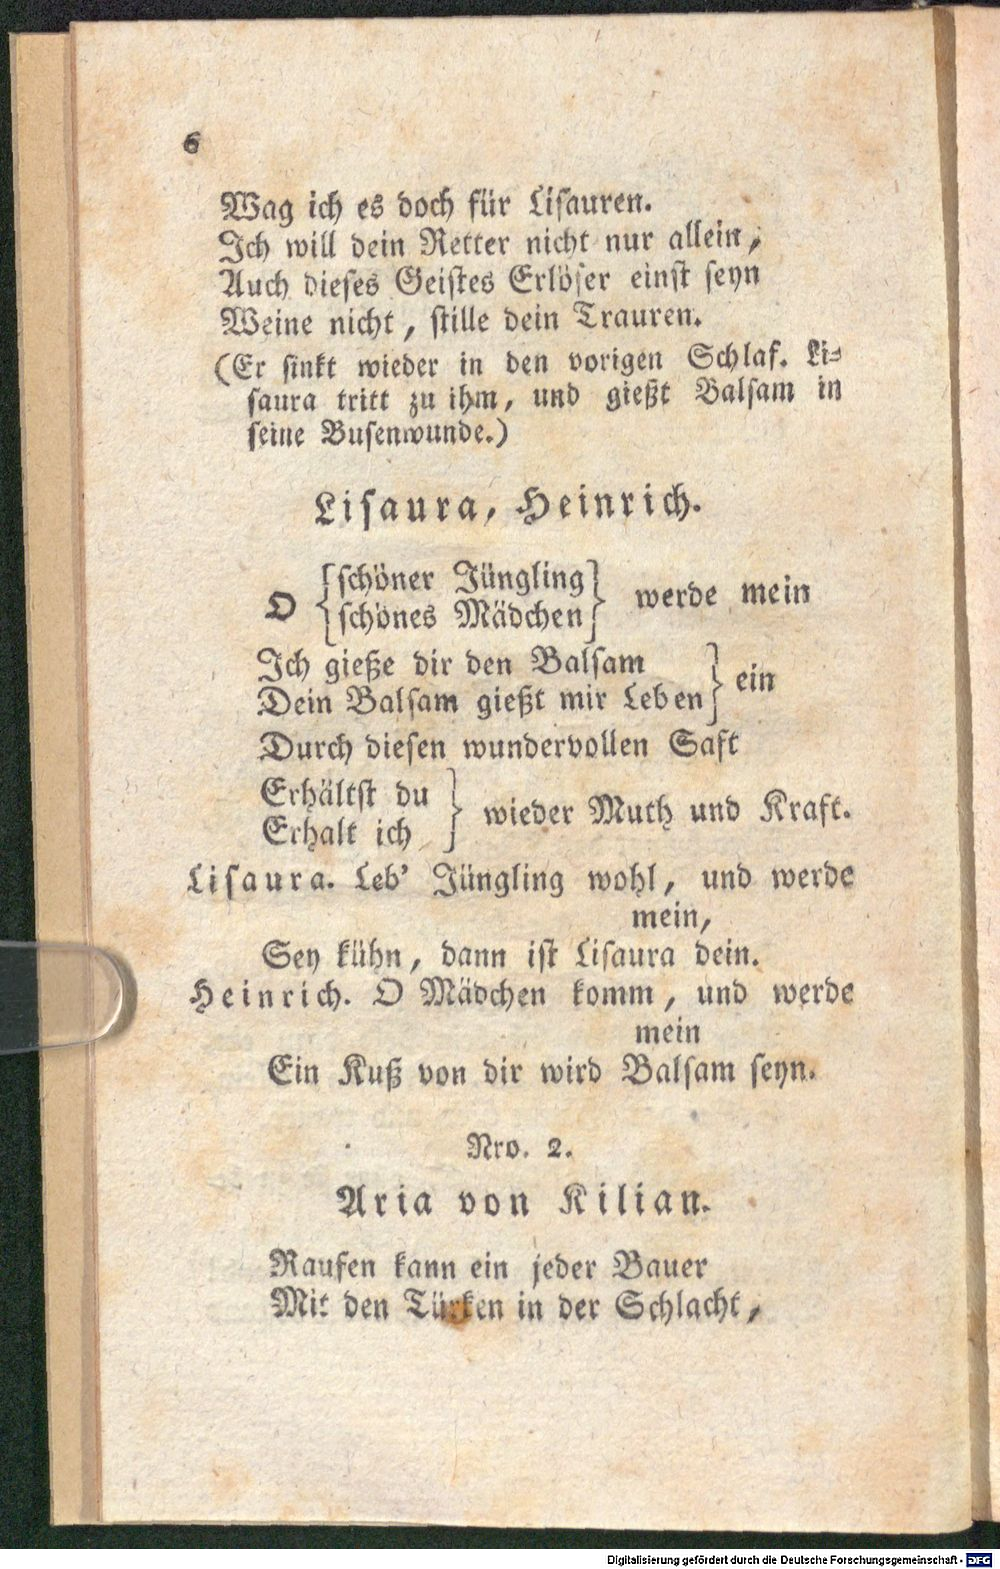 6
Wag ich es doch für Lisauren.
Ich will dein Retter nicht nur allein,
Auch dieses Geistes Erlöser einst seyn
Weine nicht, stille dein Trauren.
(Er sinkt wieder in den vorigen Schlaf. Li-
saura tritt zu ihm, und gießt Balsam in
seine Busenwunde.)
Lisaura, Heinrich.
O {schöner Jüngling} werde mein
{schönes Mädchen}
Ich gieße dir den Balsam } ein
Dein Balsam gießt mir Leben
Durch diesen wundervollen Saft
Erhältst du } wieder Muth und Kraft.
Erhalt ich
Lisaura. Leb' Jüngling wohl, und werde
mein,
Sey kühn, dann ist Lisaura dein.
Heinrich. O Mädchen komm, und werde
mein
Ein Kuß von dir wird Balsam seyn.
Nro. 2.
Aria von Kilian.
Raufen kann ein jeder Bauer
Mit den Türken in der Schlacht,
Digitalisierung gefördert durch die Deutsche Forschungsgemeinschaft - DFG